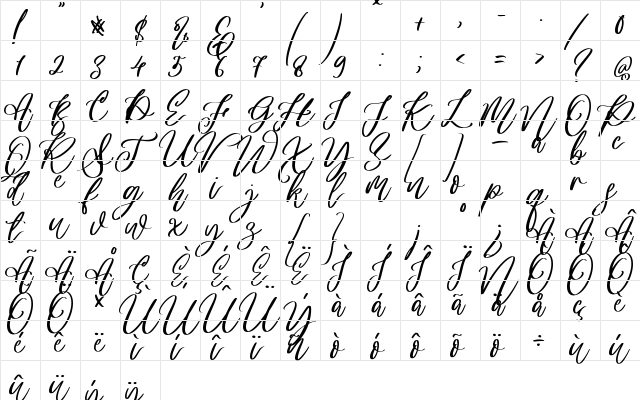 ! " # $ % & ' ( ) * + , - . / 0
1 2 3 4 5 6 7 8 9 : ; < = > ? @
A B C D E F G H I J K L M N O P
Q R S T U V W X Y Z [ ] _ a b c
d e f g h i j k l m n o p q r s
t u v w x y z { } ¡ ° ¿ À Á Â
Ã Ä Å Ç È É Ê Ë Ì Í Î Ï Ñ Ò Ó Ô
Õ Ö × Ù Ú Û Ü Ý à á â ã ä å ç è
é ê ë ì í î ï ñ ò ó ô õ ö ÷ ù ú
û ü ý ÿ